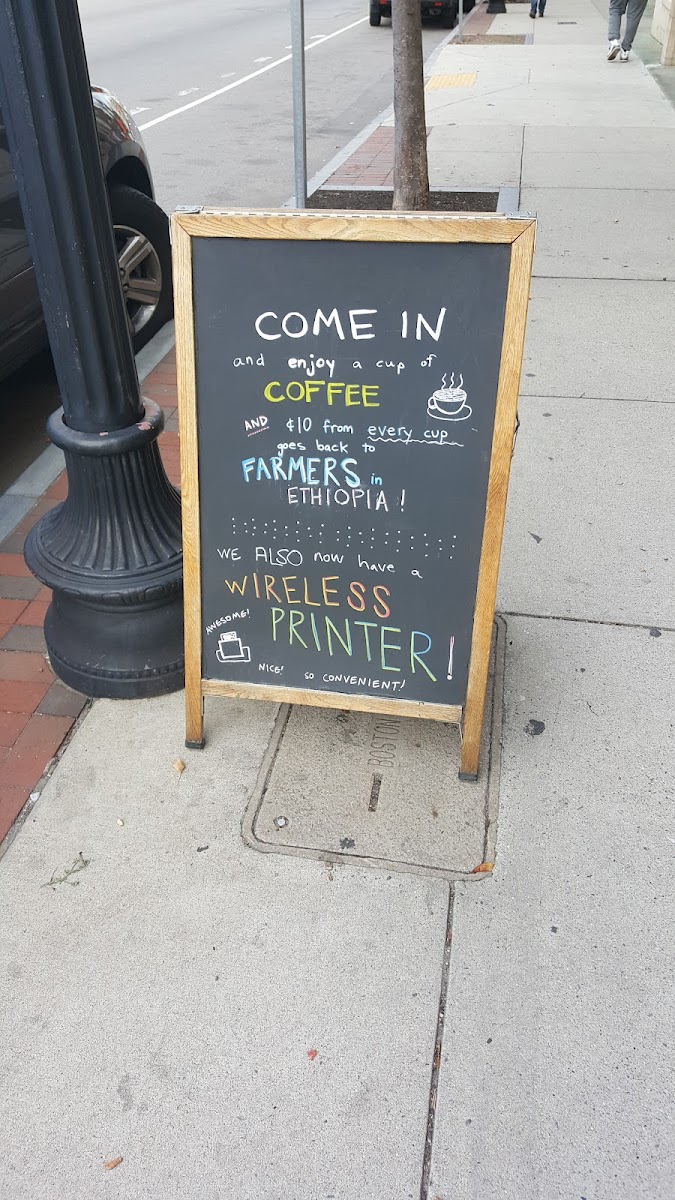 COME IN
and enjoy a cup of
COFFEE
AND ¢10 from every cup
goes back to
FARMERS in
ETHIOPIA!
WE ALSO now have a
WIRELESS
AWESOME!
PRINTER!
NICE! SO CONVENIENT!
BOSTON